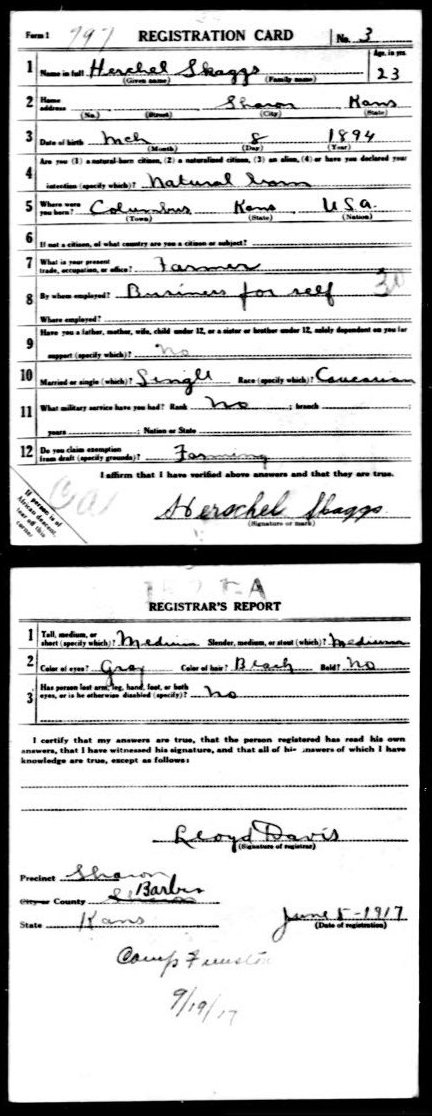 Form 1 797 REGISTRATION CARD No. 3
1 Name in full Herschel Skaggs Age, in yrs. 23
(Given name) (Family name)
2 Home address Sharon Kans
(No.) (Street) (City) (State)
3 Date of birth Mch 8 1894
(Month) (Day) (Year)
Are you (1) a natural-born citizen, (2) a naturalized citizen, (3) an alien, (4) or have you declared your
4 intention (specify which)? Natural born
5 Where were you born? Columbus Kans U.S.A.
(Town) (State) (Nation)
6 If not a citizen, of what country are you a citizen or subject?
7 What is your present trade, occupation, or office? Farmer
8 By whom employed? Business for self 30
Where employed?
9 Have you a father, mother, wife, child under 12, or a sister or brother under 12, solely dependent on you for
support (specify which)? No
10 Married or single (which)? Single Race (specify which)? Caucasian
11 What military service have you had? Rank No ; branch ;
years ; Nation or State
12 Do you claim exemption from draft (specify grounds)? Farming
I affirm that I have verified above answers and that they are true.
Herschel Skaggs
(Signature or mark)
If person is of
African descent,
tear off this
corner
REGISTRAR'S REPORT
1 Tall, medium, or short (specify which)? Medium Slender, medium, or stout (which)? Medium
2 Color of eyes? Gray Color of hair? Black Bald? No
3 Has person lost arm, leg, hand, foot, or both eyes, or is he otherwise disabled (specify)? No
I certify that my answers are true, that the person registered has read his own
answers, that I have witnessed his signature, and that all of his answers of which I have
knowledge are true, except as follows:
Lloyd Davis
(Signature of registrar)
Precinct Sharon
Barber
City or County Sharon
State Kans June 5-1917
(Date of registration)
Camp Funston
9/19/17